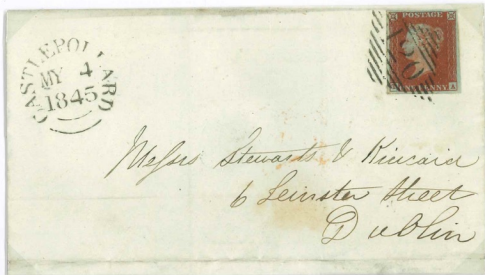 CASTLEPOLLARD
MY 4
1845
POSTAGE
ONE PENNY A
Messrs Stewards & Kincaid
6 Leinster Street
Dublin